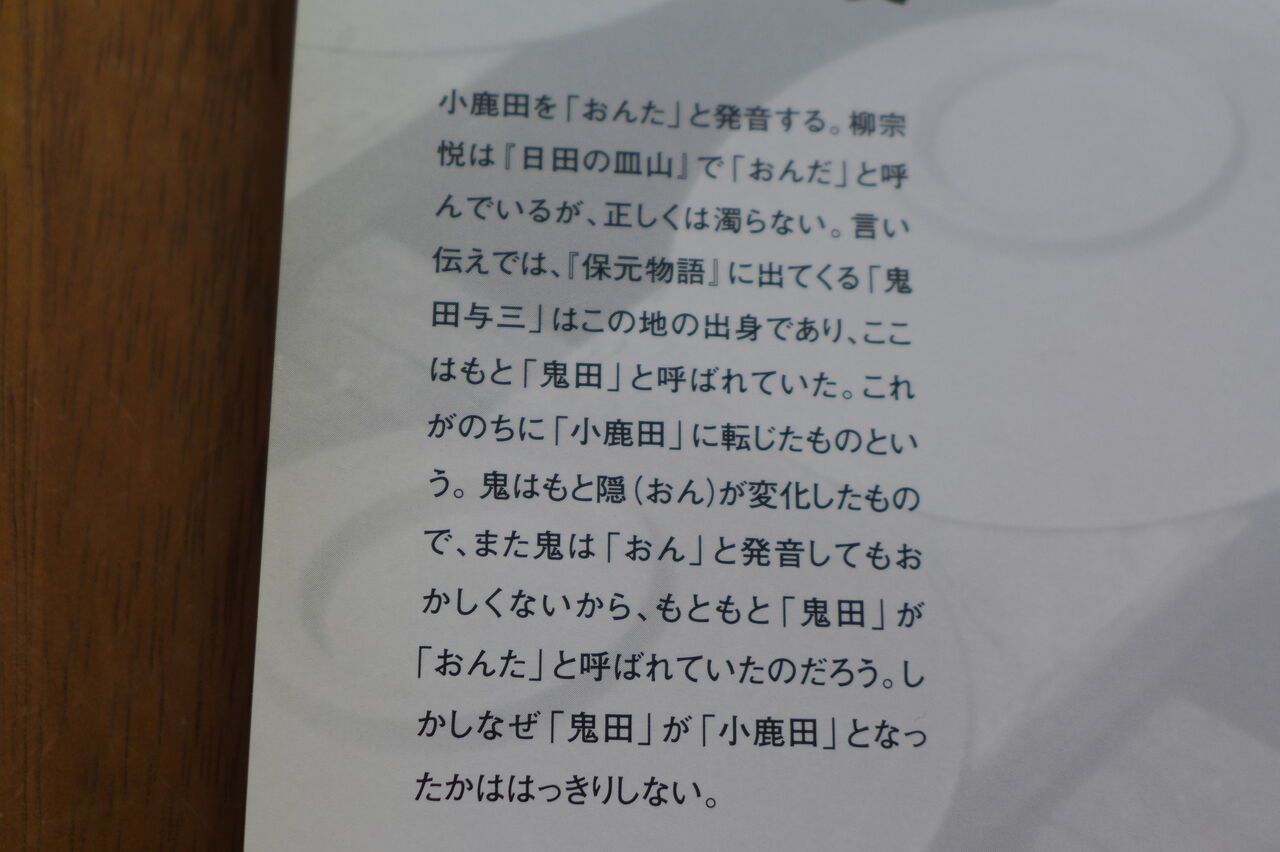 小鹿田を「おんた」と発音する。柳宗
悦は『日田の皿山』で「おんだ」と呼
んでいるが、正しくは濁らない。言い
伝えでは、『保元物語』に出てくる「鬼
田与三」はこの地の出身であり、ここ
はもと「鬼田」と呼ばれていた。これ
がのちに「小鹿田」に転じたものとい
う。鬼はもと隠（おん）が変化したもの
で、また鬼は「おん」と発音してもお
かしくないから、もともと「鬼田」が
「おんた」と呼ばれていたのだろう。し
かしなぜ「鬼田」が「小鹿田」となっ
たかははっきりしない。